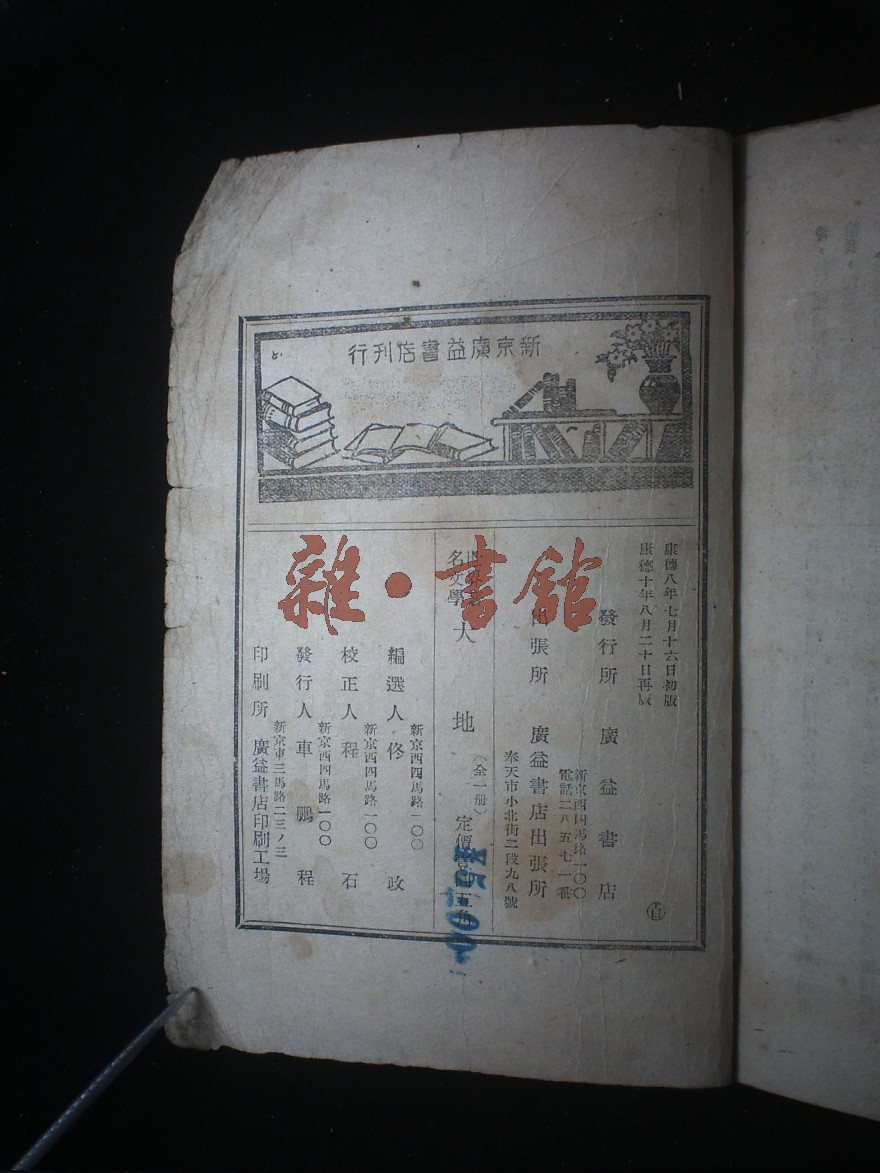 新京廣益書店刊行
康德八年七月十六日初版
康德十年八月二十日再版
發行所 廣益書店
新京西四馬路一〇〇
電話二八五七一番
出張所 廣益書店出張所
奉天市小北街二段九八號
名文學
大地
（全一册）
定價 五角
35.00
編選人 佟政
新京西四馬路一〇〇
校正人 程石
新京西四馬路一〇〇
發行人 車鵬程
新京西四馬路一〇〇
印刷所 廣益書店印刷工場
新京東三馬路二三ノ三
雜·書館